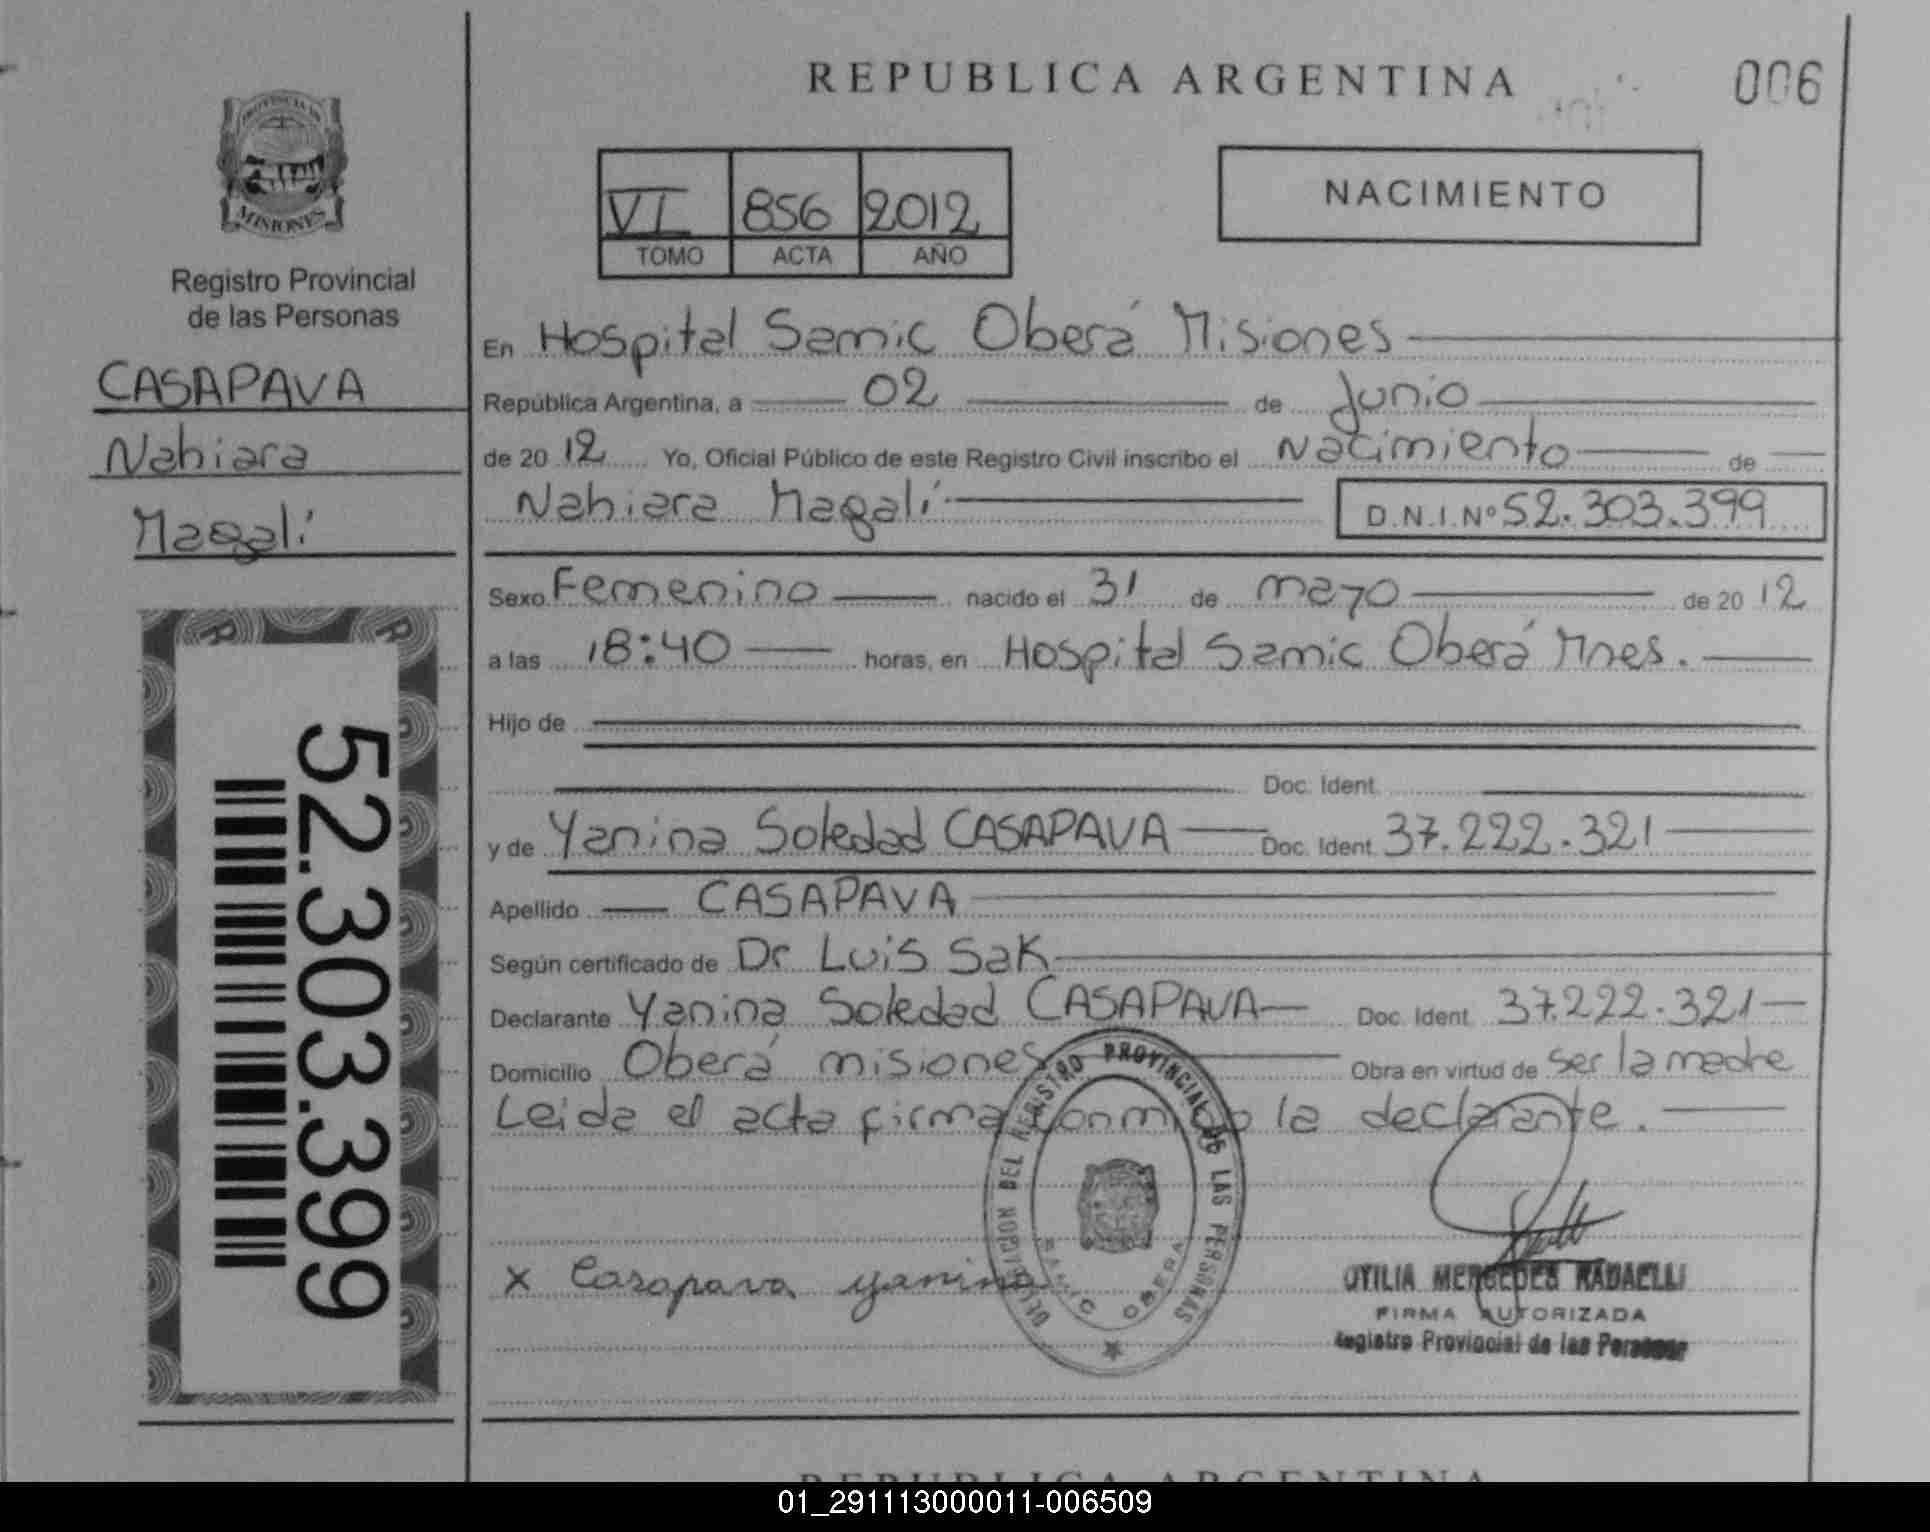 REPUBLICA ARGENTINA
006
PROVINCIA DE
MISIONES
Registro Provincial
de las Personas
CASAPAVA
Nahiara
Magalí
52.303.399
VI 856 2012
TOMO ACTA AÑO
NACIMIENTO
En Hospital Samic Oberá Misiones
República Argentina, a 02 de Junio
de 20 12 Yo, Oficial Público de este Registro Civil inscribo el Nacimiento de
Nahiara Magalí D.N.I.Nº 52.303.399
Sexo Femenino nacido el 31 de mayo de 20 12
a las 18:40 horas, en Hospital Samic Oberá Mnes.
Hijo de
Doc. Ident.
y de Yanina Soledad CASAPAVA Doc. Ident. 37.222.321
Apellido CASAPAVA
Según certificado de Dr Luis Sak
Declarante Yanina Soledad CASAPAVA Doc. Ident. 37.222.321
Domicilio Oberá misiones Obra en virtud de ser la madre
Leida el acta firma conmigo la declarante.
DELEGACION DEL REGISTRO PROVINCIAL DE LAS PERSONAS
SAMIC OBERA
x Casapava yanina
OTILIA MERCEDES RADAELLI
FIRMA AUTORIZADA
Registro Provincial de las Personas
REPUBLICA ARGENTINA
01_291113000011-006509